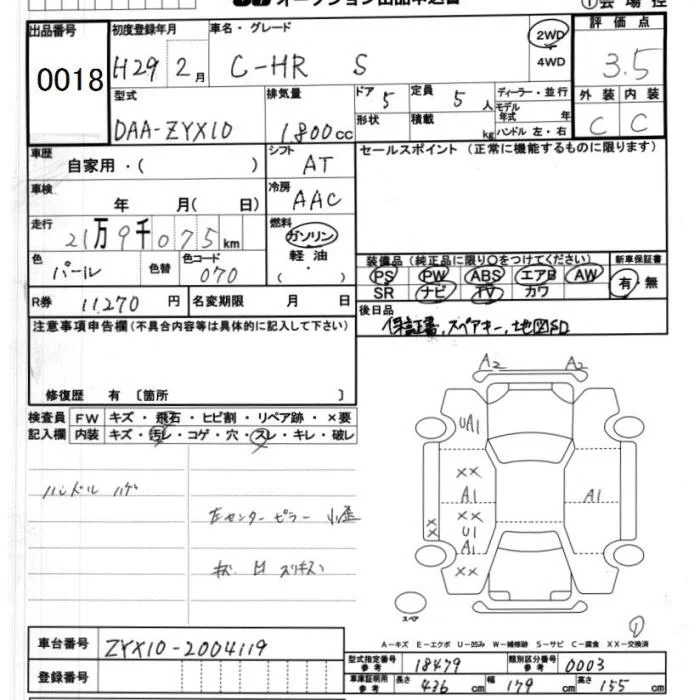 オークション出品申込書
①会場控
出品番号 0018
初度登録年月 H29 2月
車名・グレード C-HR S
2WD
4WD
評価点 3.5
型式 DAA-ZYX10
排気量 1800cc
ドア 5
形状
定員 5人
積載 kg
ディーラー・並行
モデル年式 年
ハンドル 左・右
外装 C
内装 C
車歴 自家用・( )
シフト AT
セールスポイント (正常に機能するものに限ります)
車検 年 月( 日)
冷房 AAC
走行 21万9千075km
燃料 ガソリン
軽油
( ・ )
色 パール
色替
色コード 070
装備品 (純正品に限り○をつけてください)
新車保証書
PS PW ABS エアB AW
有・無
SR ナビ TV カワ
R券 11,270円
名変期限 月 日
後日品
保証書、スペアキー、地図SD
注意事項申告欄(不具合内容等は具体的に記入して下さい)
修復歴 有 〔箇所 〕
検査員 FW キズ・飛石・ヒビ割・リペア跡・×要
記入欄 内装 キズ・汚レ・コゲ・穴・スレ・キレ・破レ
ハンドル ハゲ
左センターピラー 小歪
キズ 凹 スリキズ
A2 A2
UA1
XX
A1 A1
XX
XX
U1
A1
XX
スペア
①
A-キズ E-エクボ U-凹み W-補修跡 S-サビ C-腐食 XX-交換済
車台番号 ZYX10-2004119
登録番号
型式指定番号 参考 18479
類別区分番号 参考 0003
車庫証明用 参考 長さ 436cm 幅 179cm 高さ 155cm